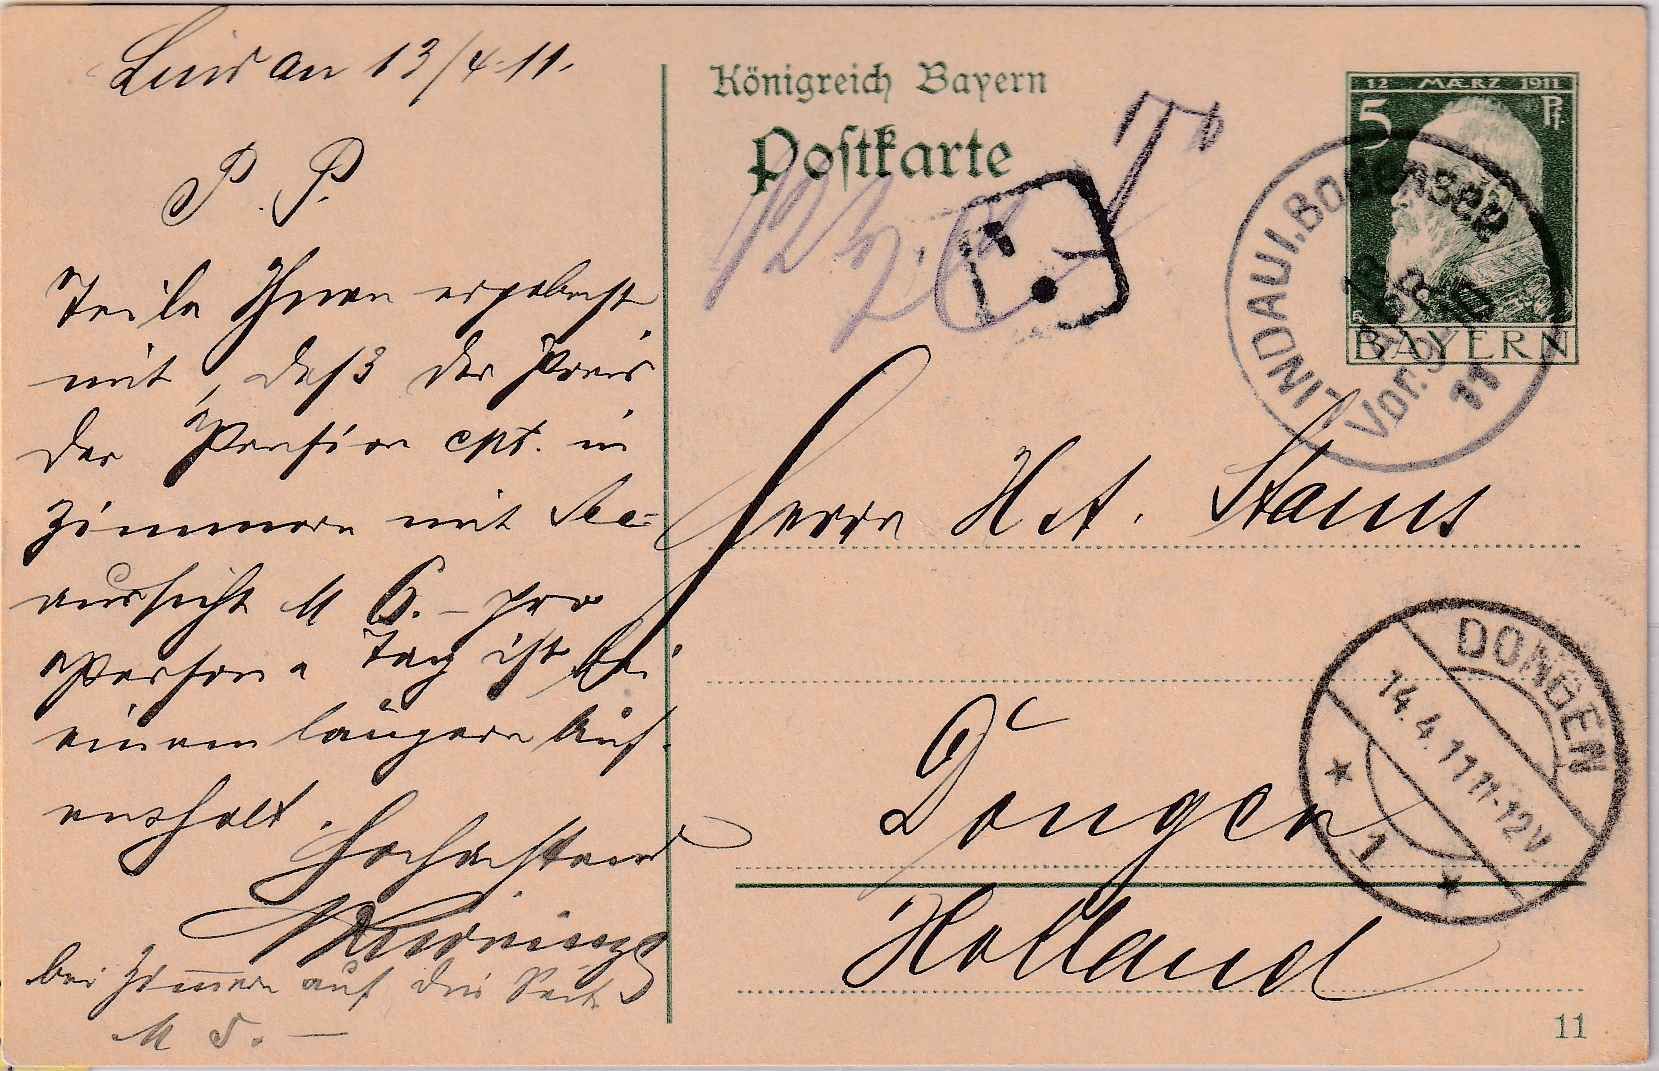 Lindau 13/4.11.
P. P.
Teile Ihnen ergebenst
mit, daß der Preis
der Pension cplt. in
Zimmern mit See-
aussicht M 6.– pro
Person u. Tag ist bei
einem längern Auf-
enthalt.
Hochachtend
bei Zimmern auf die Seite
M 5.–
Königreich Bayern
Postkarte
T
12 1/2 c
T
12 MÆRZ 1911
5 Pf
BAYERN
LINDAU i. Bodensee
Vor.
11
Herrn H. A. Stams
Dongen
Holland
DONGEN
14.4.11 11-12V
1
11